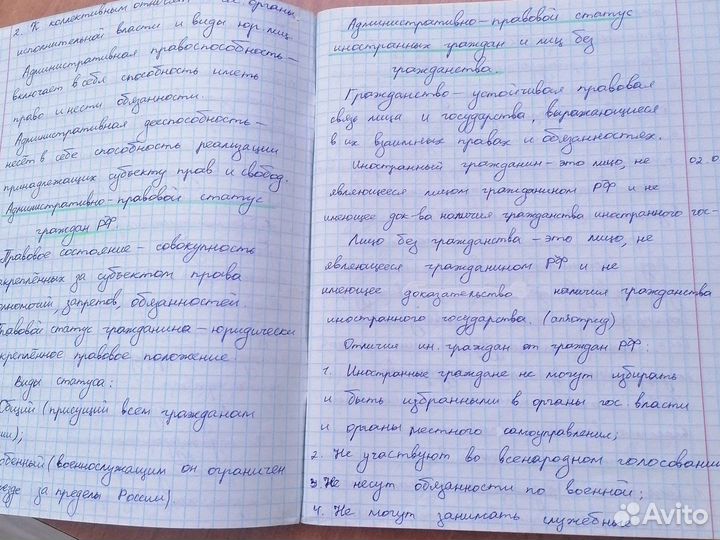 2. К коллективным относят
органы.
исполнительной власти и виды юр. лиц.
Административная правоспособность –
включает в себя способность иметь
право и нести обязанности.
Административная дееспособность –
несёт в себе способность реализации
принадлежащих субъекту прав и свобод.
Административно-правовой статус
граждан РФ.
Правовое состояние – совокупность
закреплённых за субъектом права
запретов, обязанностей.
правовой статус гражданина – юридически
закреплённое правовое положение.
Виды статуса:
Общий (присущий всем гражданам
ии);
обенный (военнослужащим он ограничен
езде за пределы России).
Административно-правовой статус
иностранных граждан и лиц без
гражданства.
Гражданство – устойчивая правовая
связь лица и государства, выражающиеся
в их взаимных правах и обязанностях.
Иностранный гражданин – это лицо, не
02.0
являющееся лицом гражданином РФ и не
имеющее док-ва наличия гражданства иностранного гос-
Лицо без гражданства – это лицо, не
являющееся гражданином РФ и не
имеющее доказательство наличия гражданства
иностранного государства. (апатрид)
Отличия ин. граждан от граждан РФ:
1. Иностранные граждане не могут избирать
и быть избранными в органы гос. власти
и органы местного самоуправления;
2. Не участвуют во всенародном голосовании
3 Не несут обязанности по военной;
4. Не могут занимать служебные
Avito